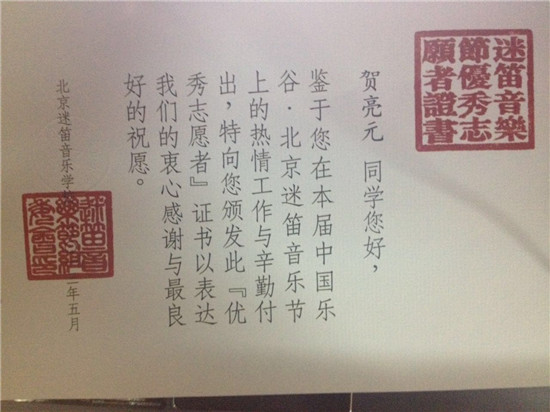 迷笛音樂
節優秀志
願者證書
贺亮元 同学您好，
鉴于您在本届中国乐
谷·北京迷笛音乐节
上的热情工作与辛勤付
出，特向您颁发此『优
秀志愿者』证书以表达
我们的衷心感谢与最良
好的祝愿。
北京迷笛音乐学 年五月